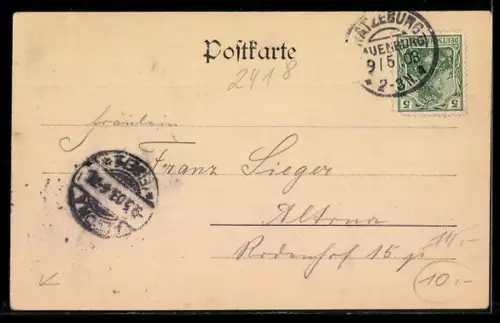 Postkarte
2418
RATZEBURG
(LAUENBURG)
9/5 03
* 2-3N. *
DEUTSCHES REICH
5 5
Fräulein
Franz Sieger
Altona
Rodenhof 15
14.-
10.-